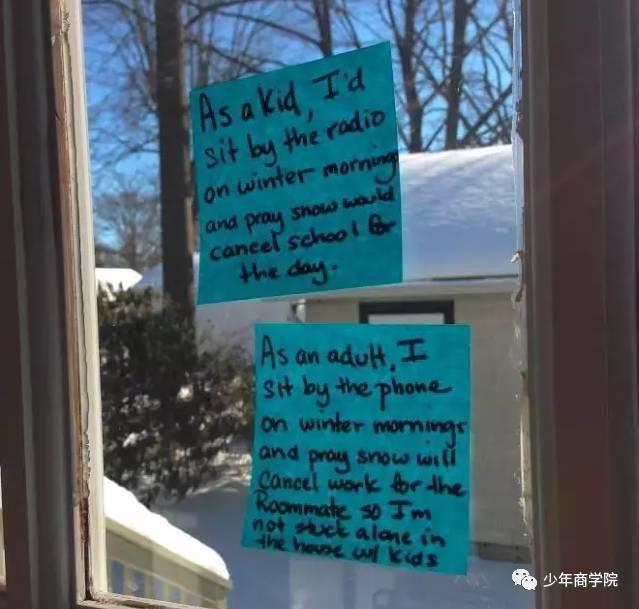 As a kid, I'd
sit by the radio
on winter mornings
and pray snow would
cancel school for
the day.
As an adult, I
sit by the phone
on winter mornings
and pray snow will
cancel work for the
Roommate so I'm
not stuck alone in
the house w/ kids
少年商学院